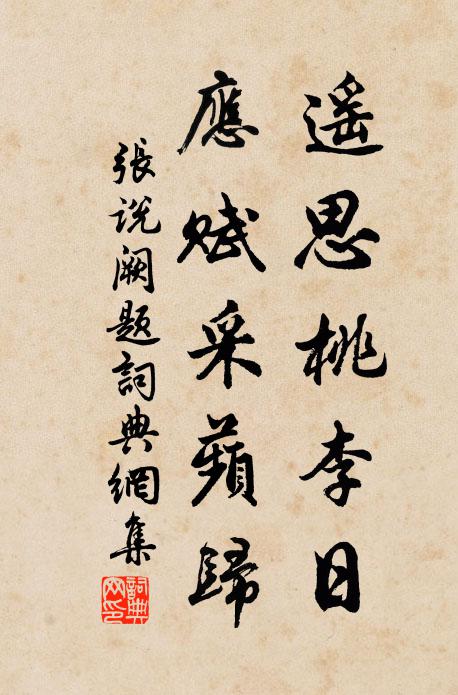 遥思桃李日
應賦采蘋歸
張说阙題詞典網集
詞典網印